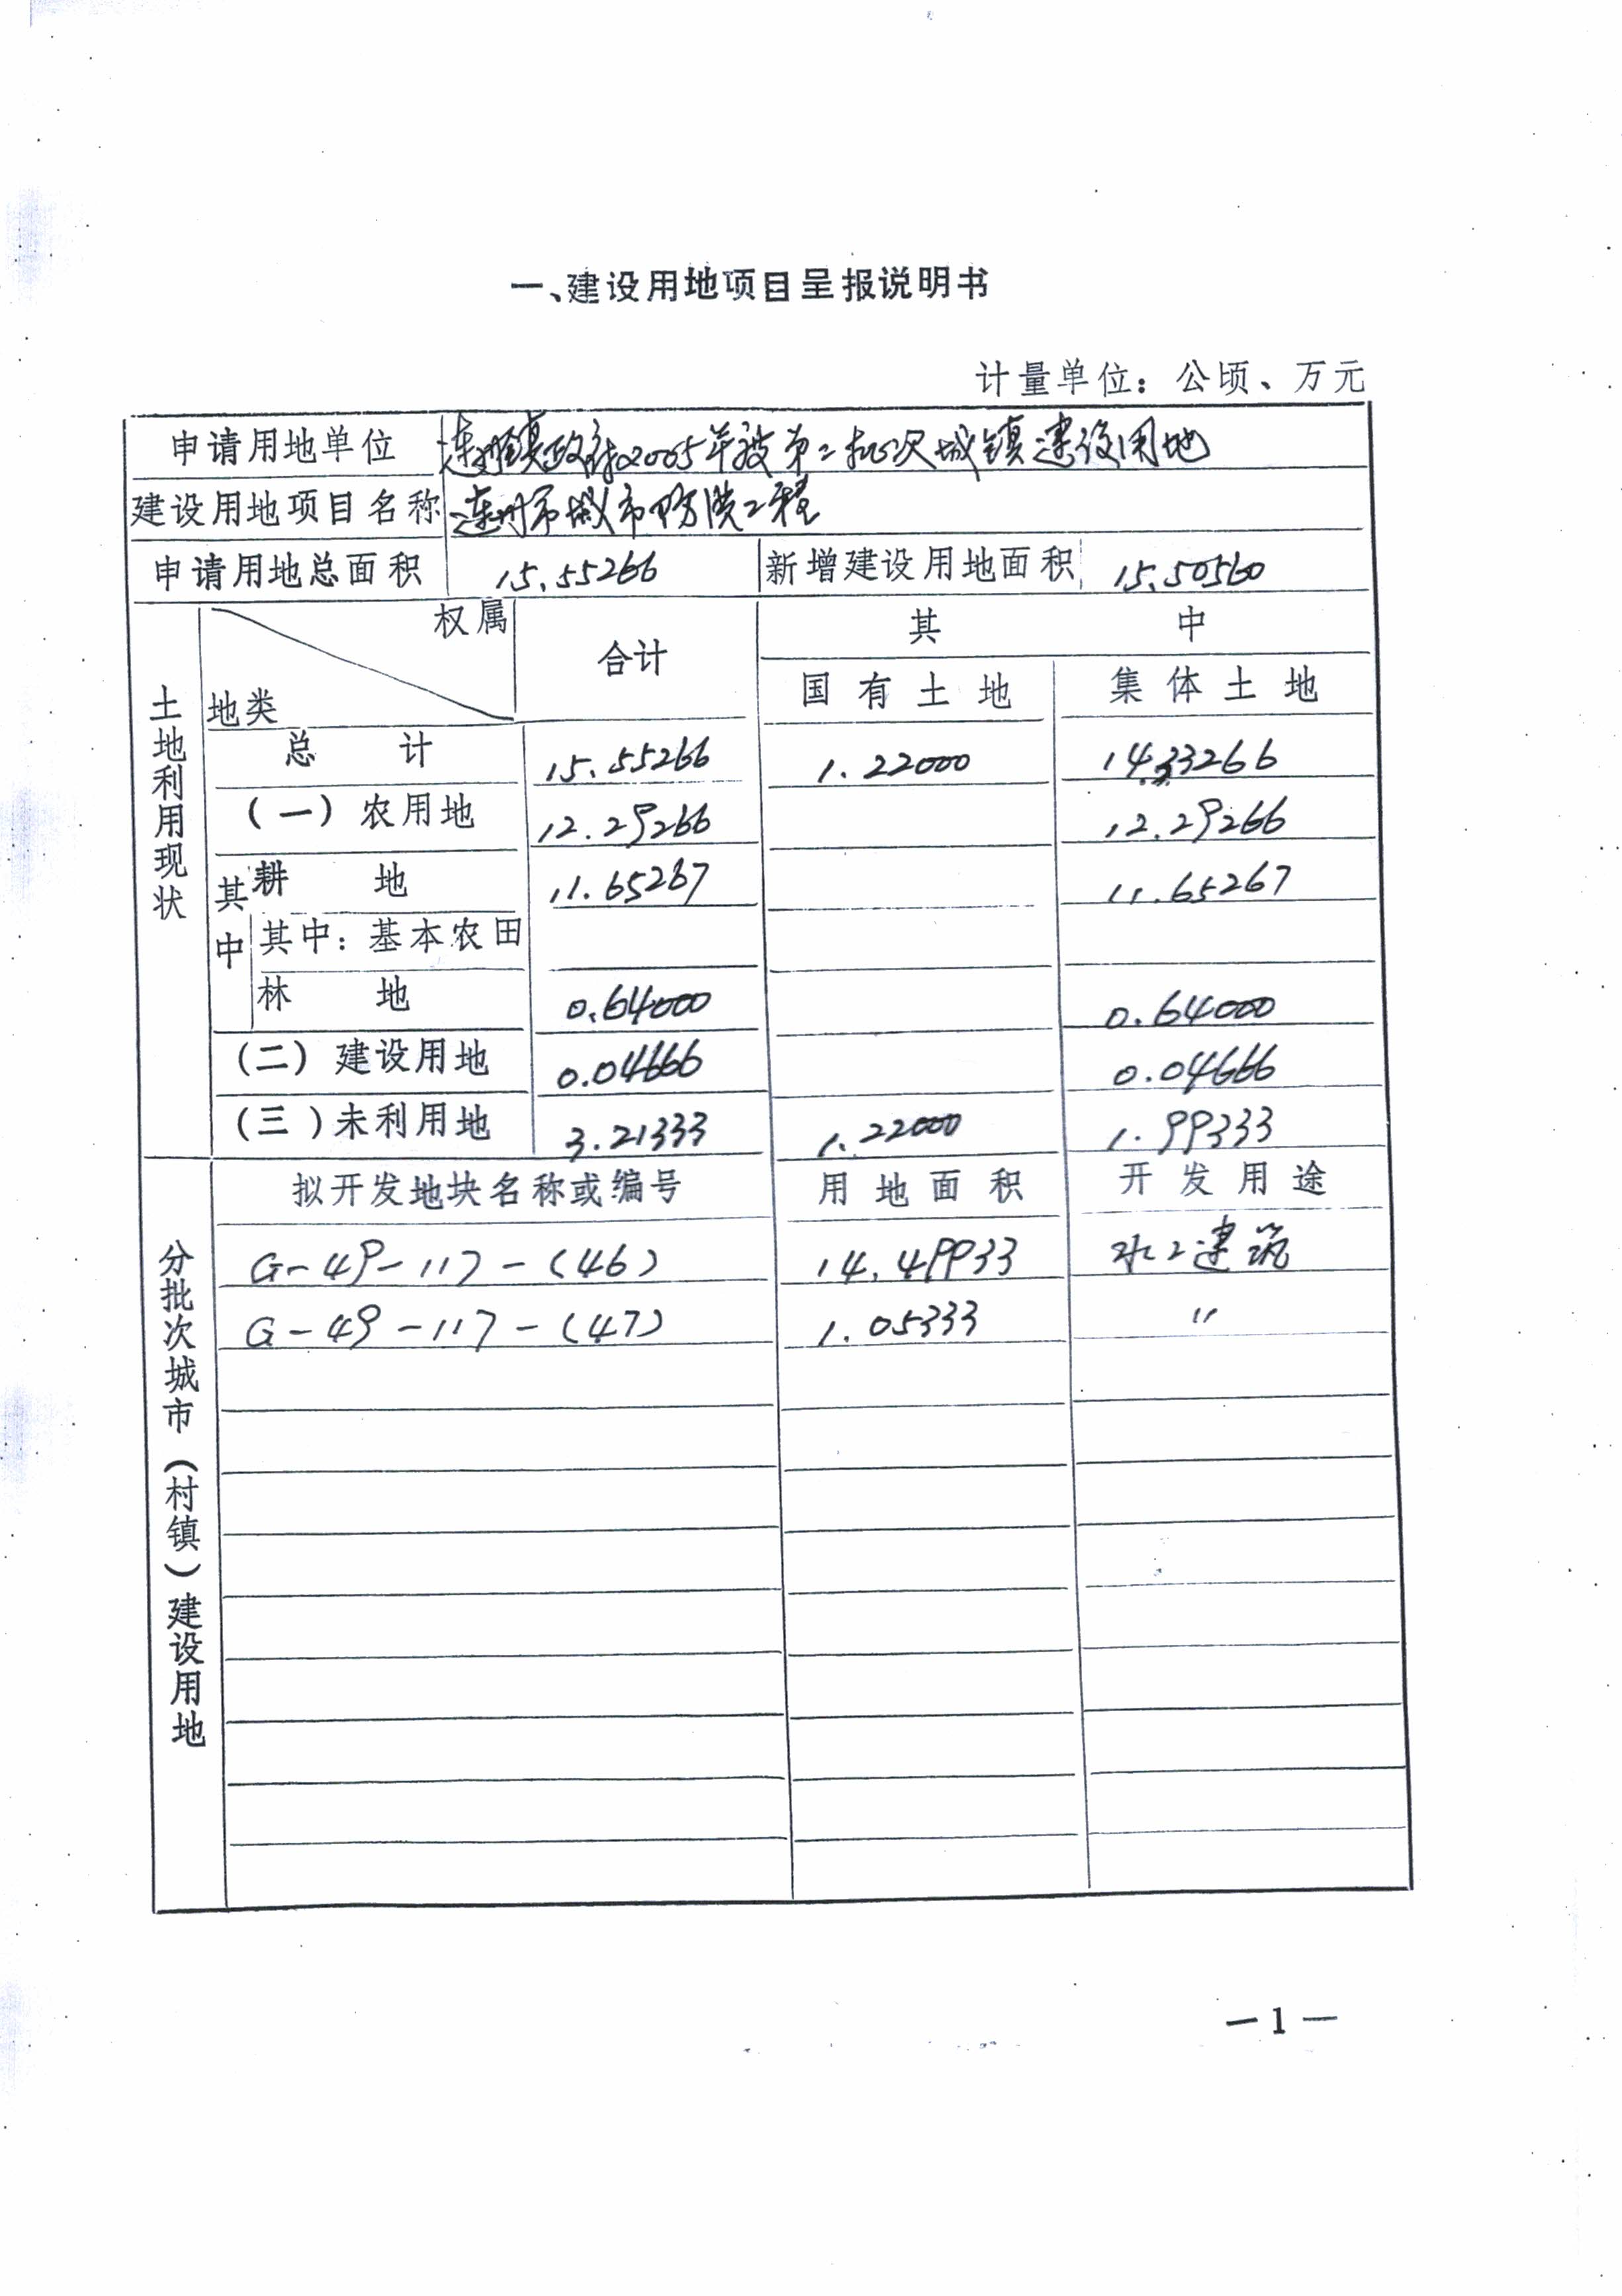 一、建设用地项目呈报说明书
计量单位：公顷、万元
申请用地单位 连州镇政府2005年度第二批次城镇建设用地
建设用地项目名称 连州市城市防洪工程
申请用地总面积 15.55266 新增建设用地面积 15.50560
土地利用现状
权属 地类 合计 其中
国有土地 集体土地
总计 15.55266 1.22000 14.33266
(一)农用地 12.29266 12.29266
其中 耕地 11.65267 11.65267
其中：基本农田
林地 0.64000 0.64000
(二)建设用地 0.04666 0.04666
(三)未利用地 3.21333 1.22000 1.99333
分批次城市（村镇）建设用地
拟开发地块名称或编号 用地面积 开发用途
G-49-117-(46) 14.49933 水工建筑
G-49-117-(47) 1.05333 〃
—1—